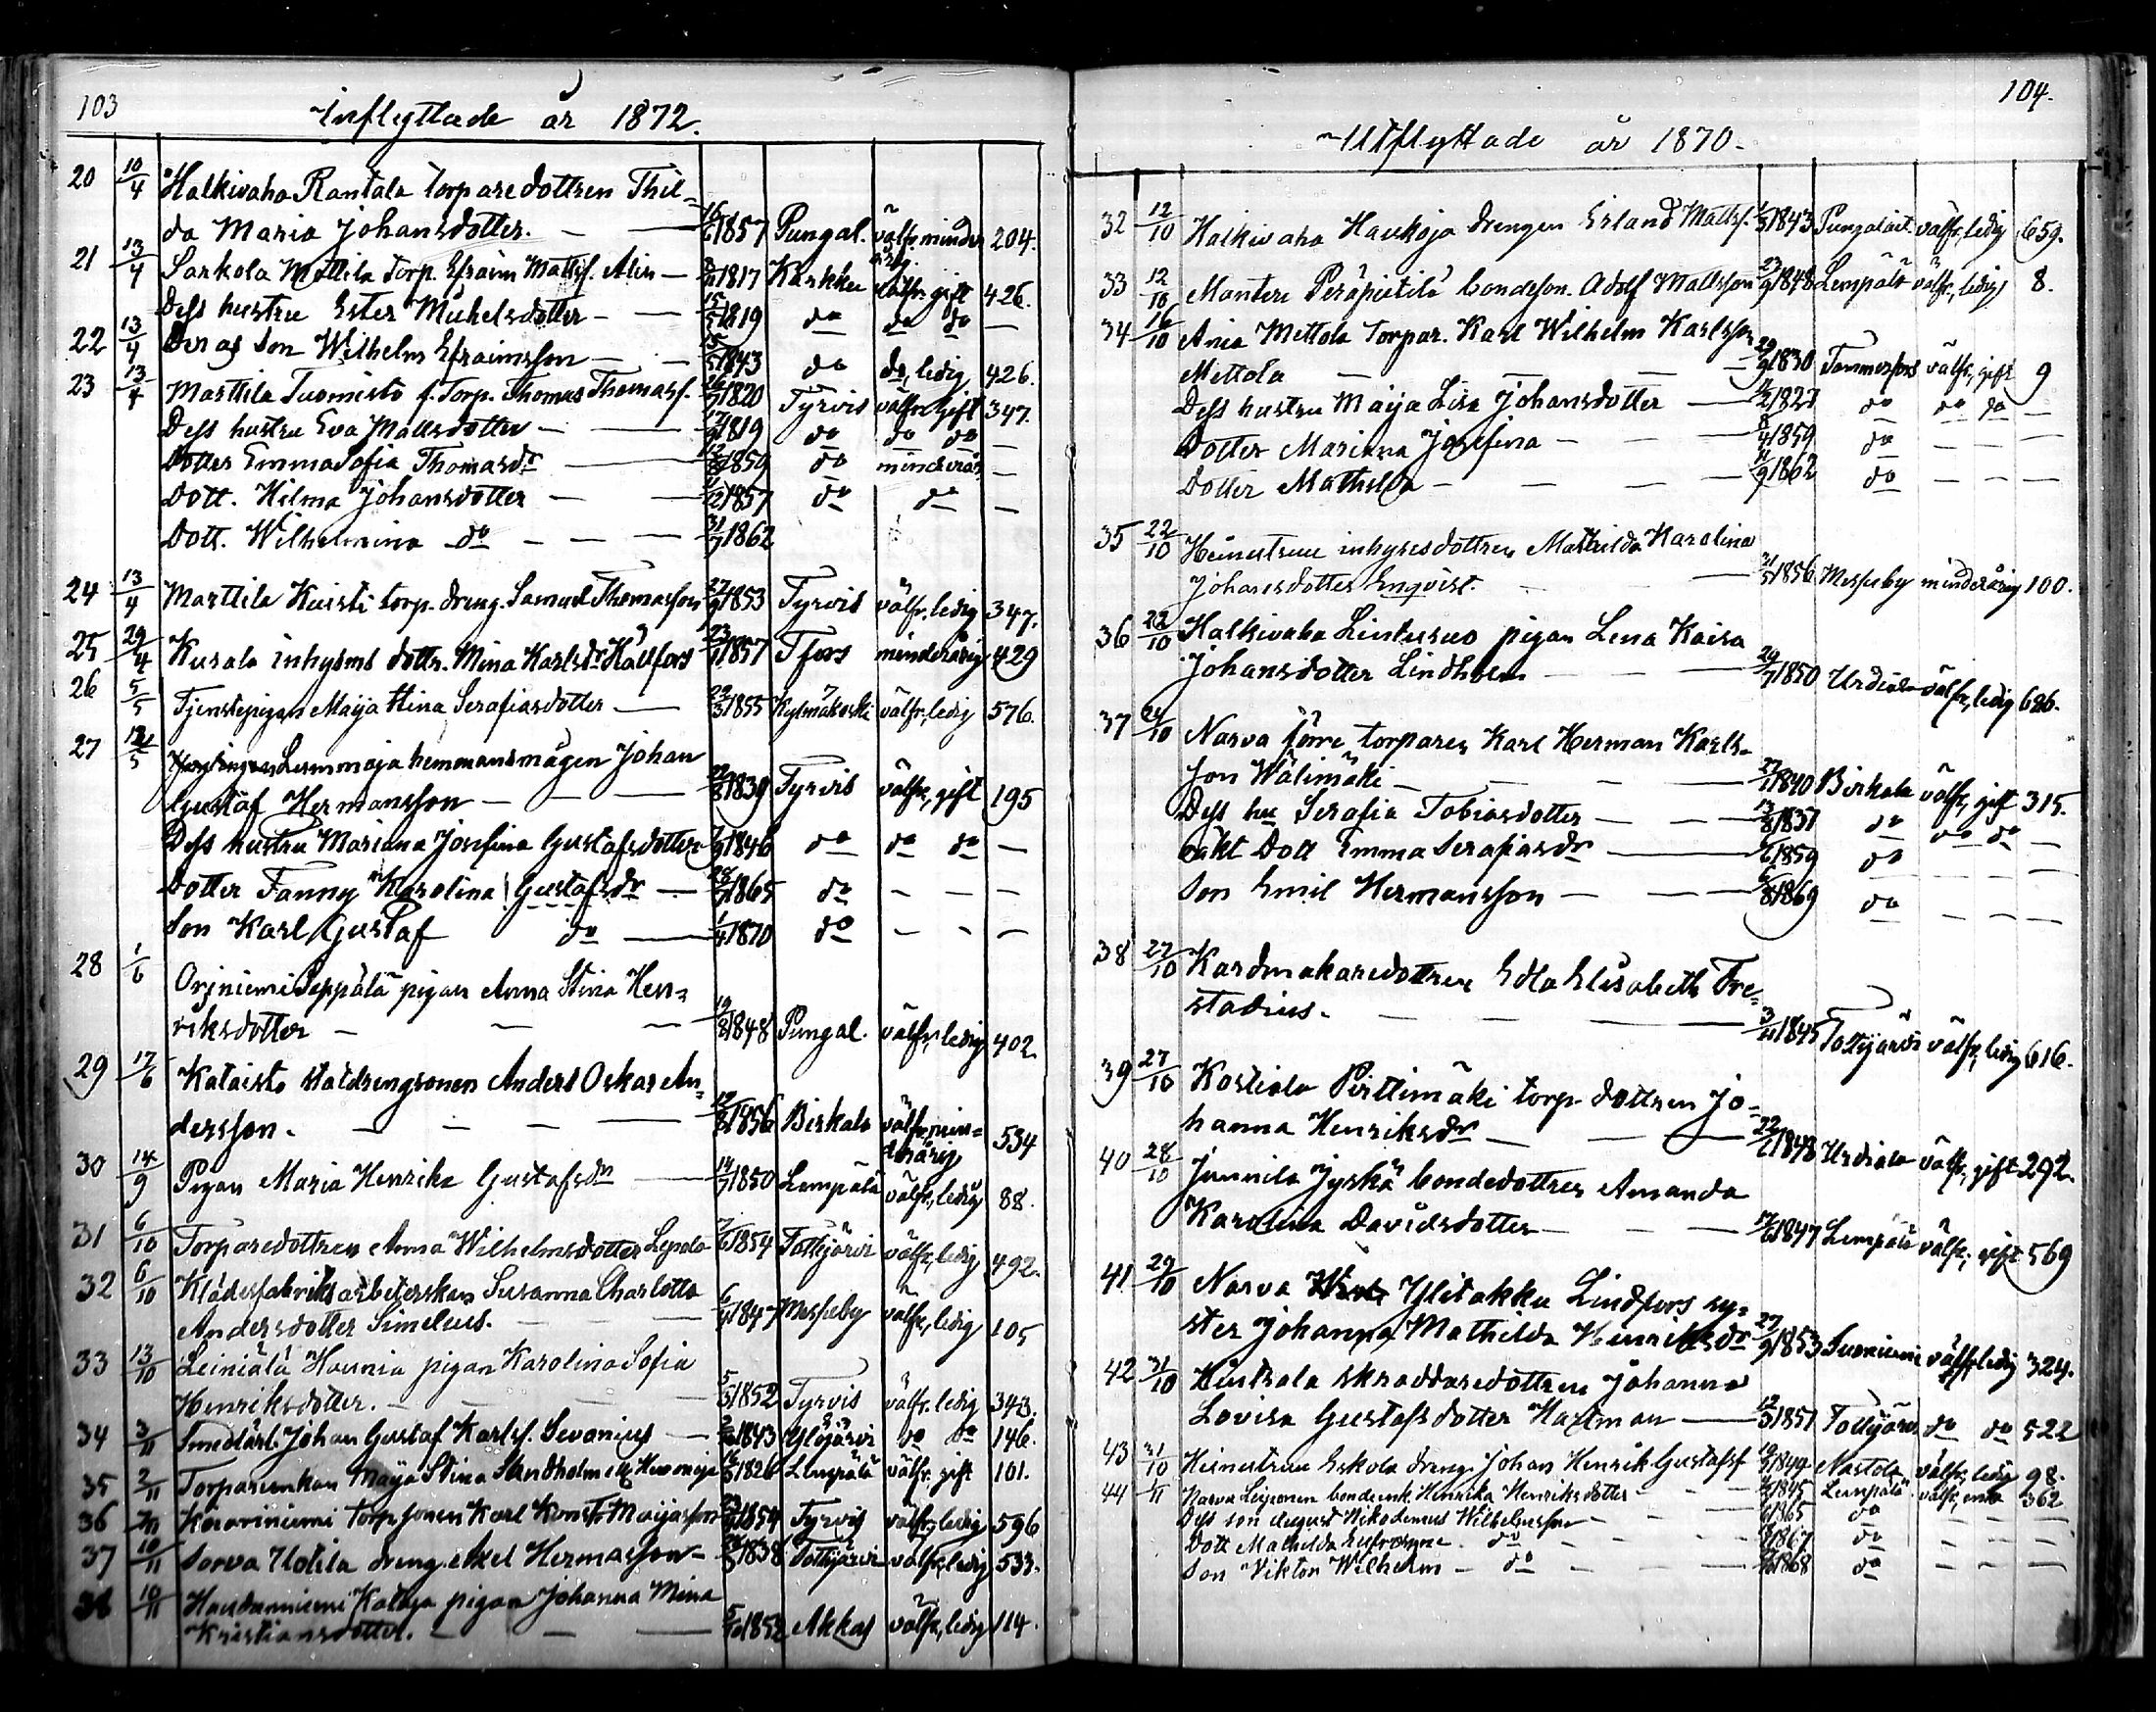 103
Inflyttade år 1872.
20 10/4 Halkivaha Rantala torparedottren Thil=
da Maria Johansdotter. — — 16/6 1857 Pungal. välfr. minder årig. 204.
21 13/4 Sarkola Mattila torp. Efraim Mattsf. Alin — 1817 Karkku välfr. gift 426.
Dess hustru Ester Michelsdotter — — 1819 do do do —
22 13/4 Deras Son Wilhelm Efraimsson — — 1843 do do, ledig 426.
23 13/4 Marttila Tuomisto f. Torp. Thomas Thomasf. 1820 Tyrvis välfr. gift 347.
Dess hustru Eva Mattsdotter — — 1819 do do do —
Dotter Emma Sofia Thomasdr — 1859 do minderår. —
Dott. Hilma Johansdotter — — 1857 do do —
Dott. Wilhelmina do — — — 31/7 1862
24 13/4 Marttila Kuisti torp. dreng. Samuel Thomasson 27/9 1853 Tyrvis välfr. ledig 347.
25 29/4 Kurala inhysms dottr. Mina Karlsdr Hällfors 23/11 1857 Tfors minderårig 429
26 5/5 Tjenstepigan Maija Stina Serafiasdotter — 22/3 1855 Kylmäkoski välfr, ledig 576.
27 12/5 Lummaja hemmansmågen Johan
Gustaf Hermansson — — — 22/8 1839 Tyrvis välfr, gift 195
Dess hustru Mariana Josefina Gustafsdotter 1846 do do do —
Dotter Fanny Karolina Gustafsdr — 28/7 1865 do — — —
Son Karl Gustaf do — 1/4 1870 do — — —
28 1/6 Orjniemi Seppälä pigan Anna Stina Hen=
riksdotter — — — 19/8 1848 Pungal. välfr, ledig 402.
29 17/6 Kataisto statdrengsonen Anders Oskar An=
dersson. — — — — 1856 Birkala välfr, min=derårig 534
30 14/9 Pigan Maria Henrika Gustafsdr — 14/7 1850 Lempälä välfr, ledig 88.
31 6/10 Torparedottren Anna Wilhelmsdotter Lepola 7/6 1854 Tottijärvi välfr, ledig 492.
32 6/10 Klädesfabriksarbeterskan Susanna Charlotta
Andersdotter Simelius. — — — 6/4 1847 Messuby välfr, ledig 105
33 13/10 Leiniälä Haunia pigan Karolina Sofia
Henriksdotter. — — — 5/5 1852 Tyrvis välfr. ledig 343.
34 3/11 Smedlärl. Johan Gustaf Karlsf. Sevonius — 1843 Ylöjärvi do do 146.
35 2/11 Torpareenkan Maija Stina Sandholm 1826 Lempälä välfr. gift 101.
36 Koiviniemi torp. sonen Karl Konst. Maijasson 1854 Tyrvis välfr, ledig 596
37 10/11 Sorva Uotila dreng. Axel Hermansson — 1838 Tottijärvi välfr, ledig 533.
38 10/11 Haudanniemi Kataja pigan Johanna Mina
Kristiansdotter. — — — 5/10 1852 Akkas välfr, ledig 114.
104.
Utflyttade år 1870.
32 12/10 Halkivaha Haukoja drengen Erland Mattsf. 1843 Pungalait. välfr, ledig 659.
33 12/10 Mantere Peräpietilä bondeson. Adolf Mattsson 23/9 1848 Lempälä välfr, ledig 8.
34 16/10 Ania Mettola torpar. Karl Wilhelm Karlsson
Mettola — — — — 29/9 1830 Tammerfors välfr, gift 9
Dess hustru Maija Lisa Johansdotter — 1827 do do do —
Dotter Mariana Josefina — — — 8/4 1859 do — — —
Dotter Mathilda — — — — 11/9 1862 do — — —
35 22/10 Heinustruu inhysesdottren Mathilda Karolina
Johansdotter Enqvist. — — 21/5 1856 Messuby minderårig 100.
36 22/10 Halkivaha Lintusuo pigan Lena Kaisa
Johansdotter Lindholm — — 29/7 1850 Urdiala välfr, ledig 686.
37 24/10 Narva förre torparen Karl Herman Karls=
son Wälimäki — — — 27/1 1840 Birkala välfr, gift 315.
Dess hu Serafia Tobiasdotter — — 13/8 1837 do do do —
oäkt Dott Emma Serafiasdr — 1859 do — — —
Son Emil Hermansson — — — 6/8 1869 do — — —
38 27/10 Kardmakaredottren Edla Elisabeth Fre=
stadius. — — — — 3/11 1845 Tottijärvi välfr, ledig 616.
39 27/10 Kostiala Pirttimäki torp. dottren Jo=
hanna Henriksdr — — — 22/1 1848 Urdiala välfr, gift 292.
40 28/10 Junnila Jyskä bondedottren Amanda
Karolina Davidsdotter — — — 17/6 1847 Lempälä välfr, gift 569
41 29/10 Narva Ylitakku Lindfors sy=
ster Johanna Mathilda Henriksdr 27/9 1853 Suoniemi välfr ledig 324.
42 31/10 Hintsala skraddaredottren Johanna
Lovisa Gustafsdotter Hartman — 12/3 1851 Tottijärvi do do 522
43 31/10 Heinustruu Eskola dreng. Johan Henrik Gustafsf 1849 Nastola välfr, ledig 98.
44 Narva Leiponen bondeenk. Henrika Henriksdotter — — 1845 Lempälä välfr, enka 362
Dess son August Nikodemus Wilhelmsson — — 1865 do — — —
Dott Mathilda Eufrosyne. do — — 1867 do — — —
Son Viktor Wilhelm — do — — — 1868 do — — —